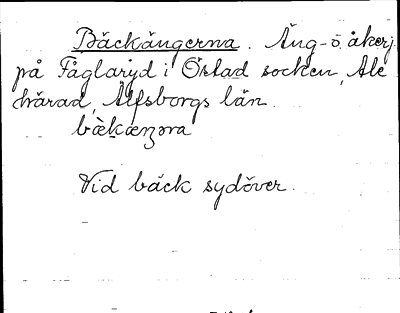 Bäckängerna. Äng- o. åkerj.
på Fåglaryd i Östad socken, Ale
härad, Älfsborgs län.
bækæŋəra
Vid bäck sydöver.